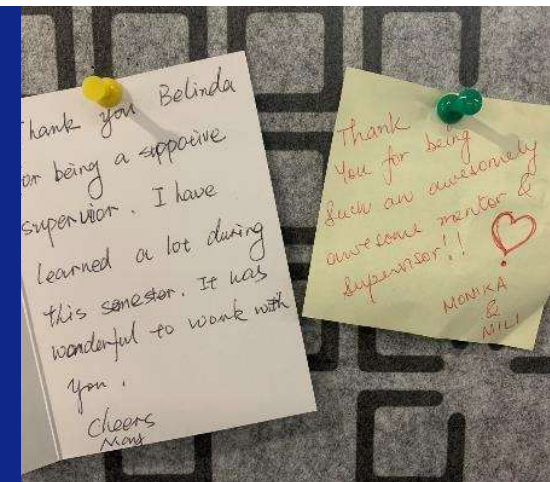 Thank you Belinda
for being a suppotive
supervior. I have
learned a lot during
this semester. It was
wonderful to work with
you.
Cheers
Thank
You for being
Such an awesomely
awesome mentor &
Supervisor!!
MONIKA
&
MILI